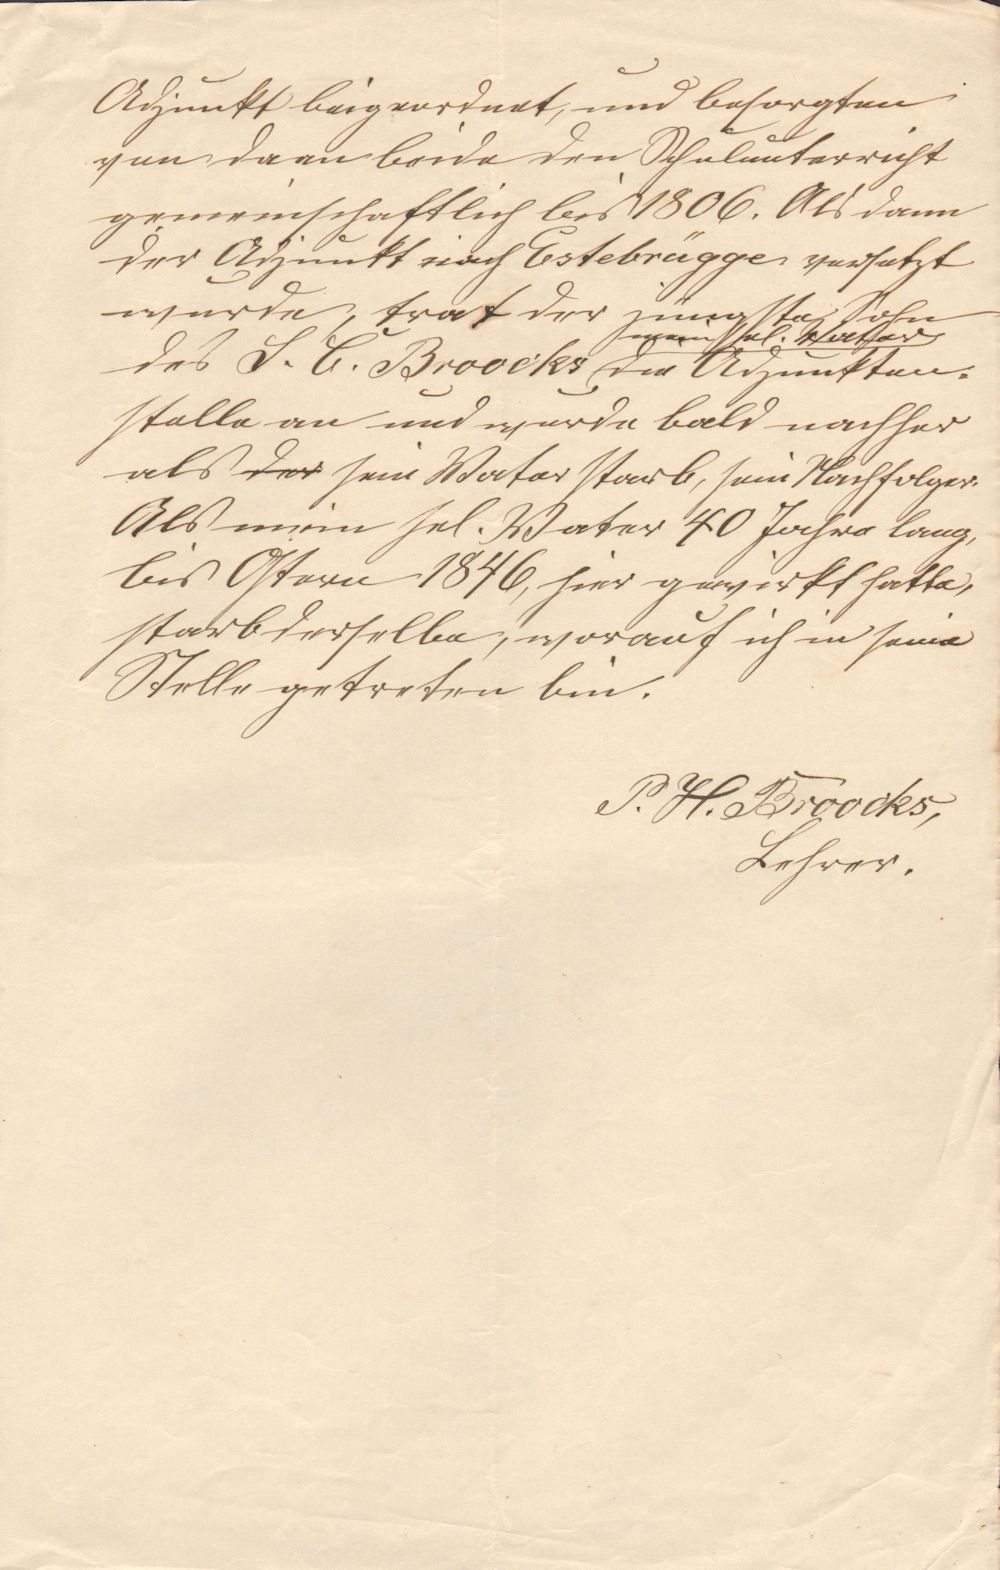 Adjunkt beigeordnet, und besorgten
von da an beide den Schulunterricht
gemeinschaftlich bis 1806. Als dann
der Adjunkt nach Estebrügge versetzt
wurde, trat der jüngste Sohn
mein sel. Vater
des J. C. Broocks die Adjunkten-
stelle an und wurde bald nachher
als der sein Vater starb, sein Nachfolger.
Als mein sel. Vater 40 Jahre lang,
bis Ostern 1846, hier gewirkt hatte,
starb derselbe, worauf ich in seine
Stelle getreten bin.
P. H. Broocks,
Lehrer.